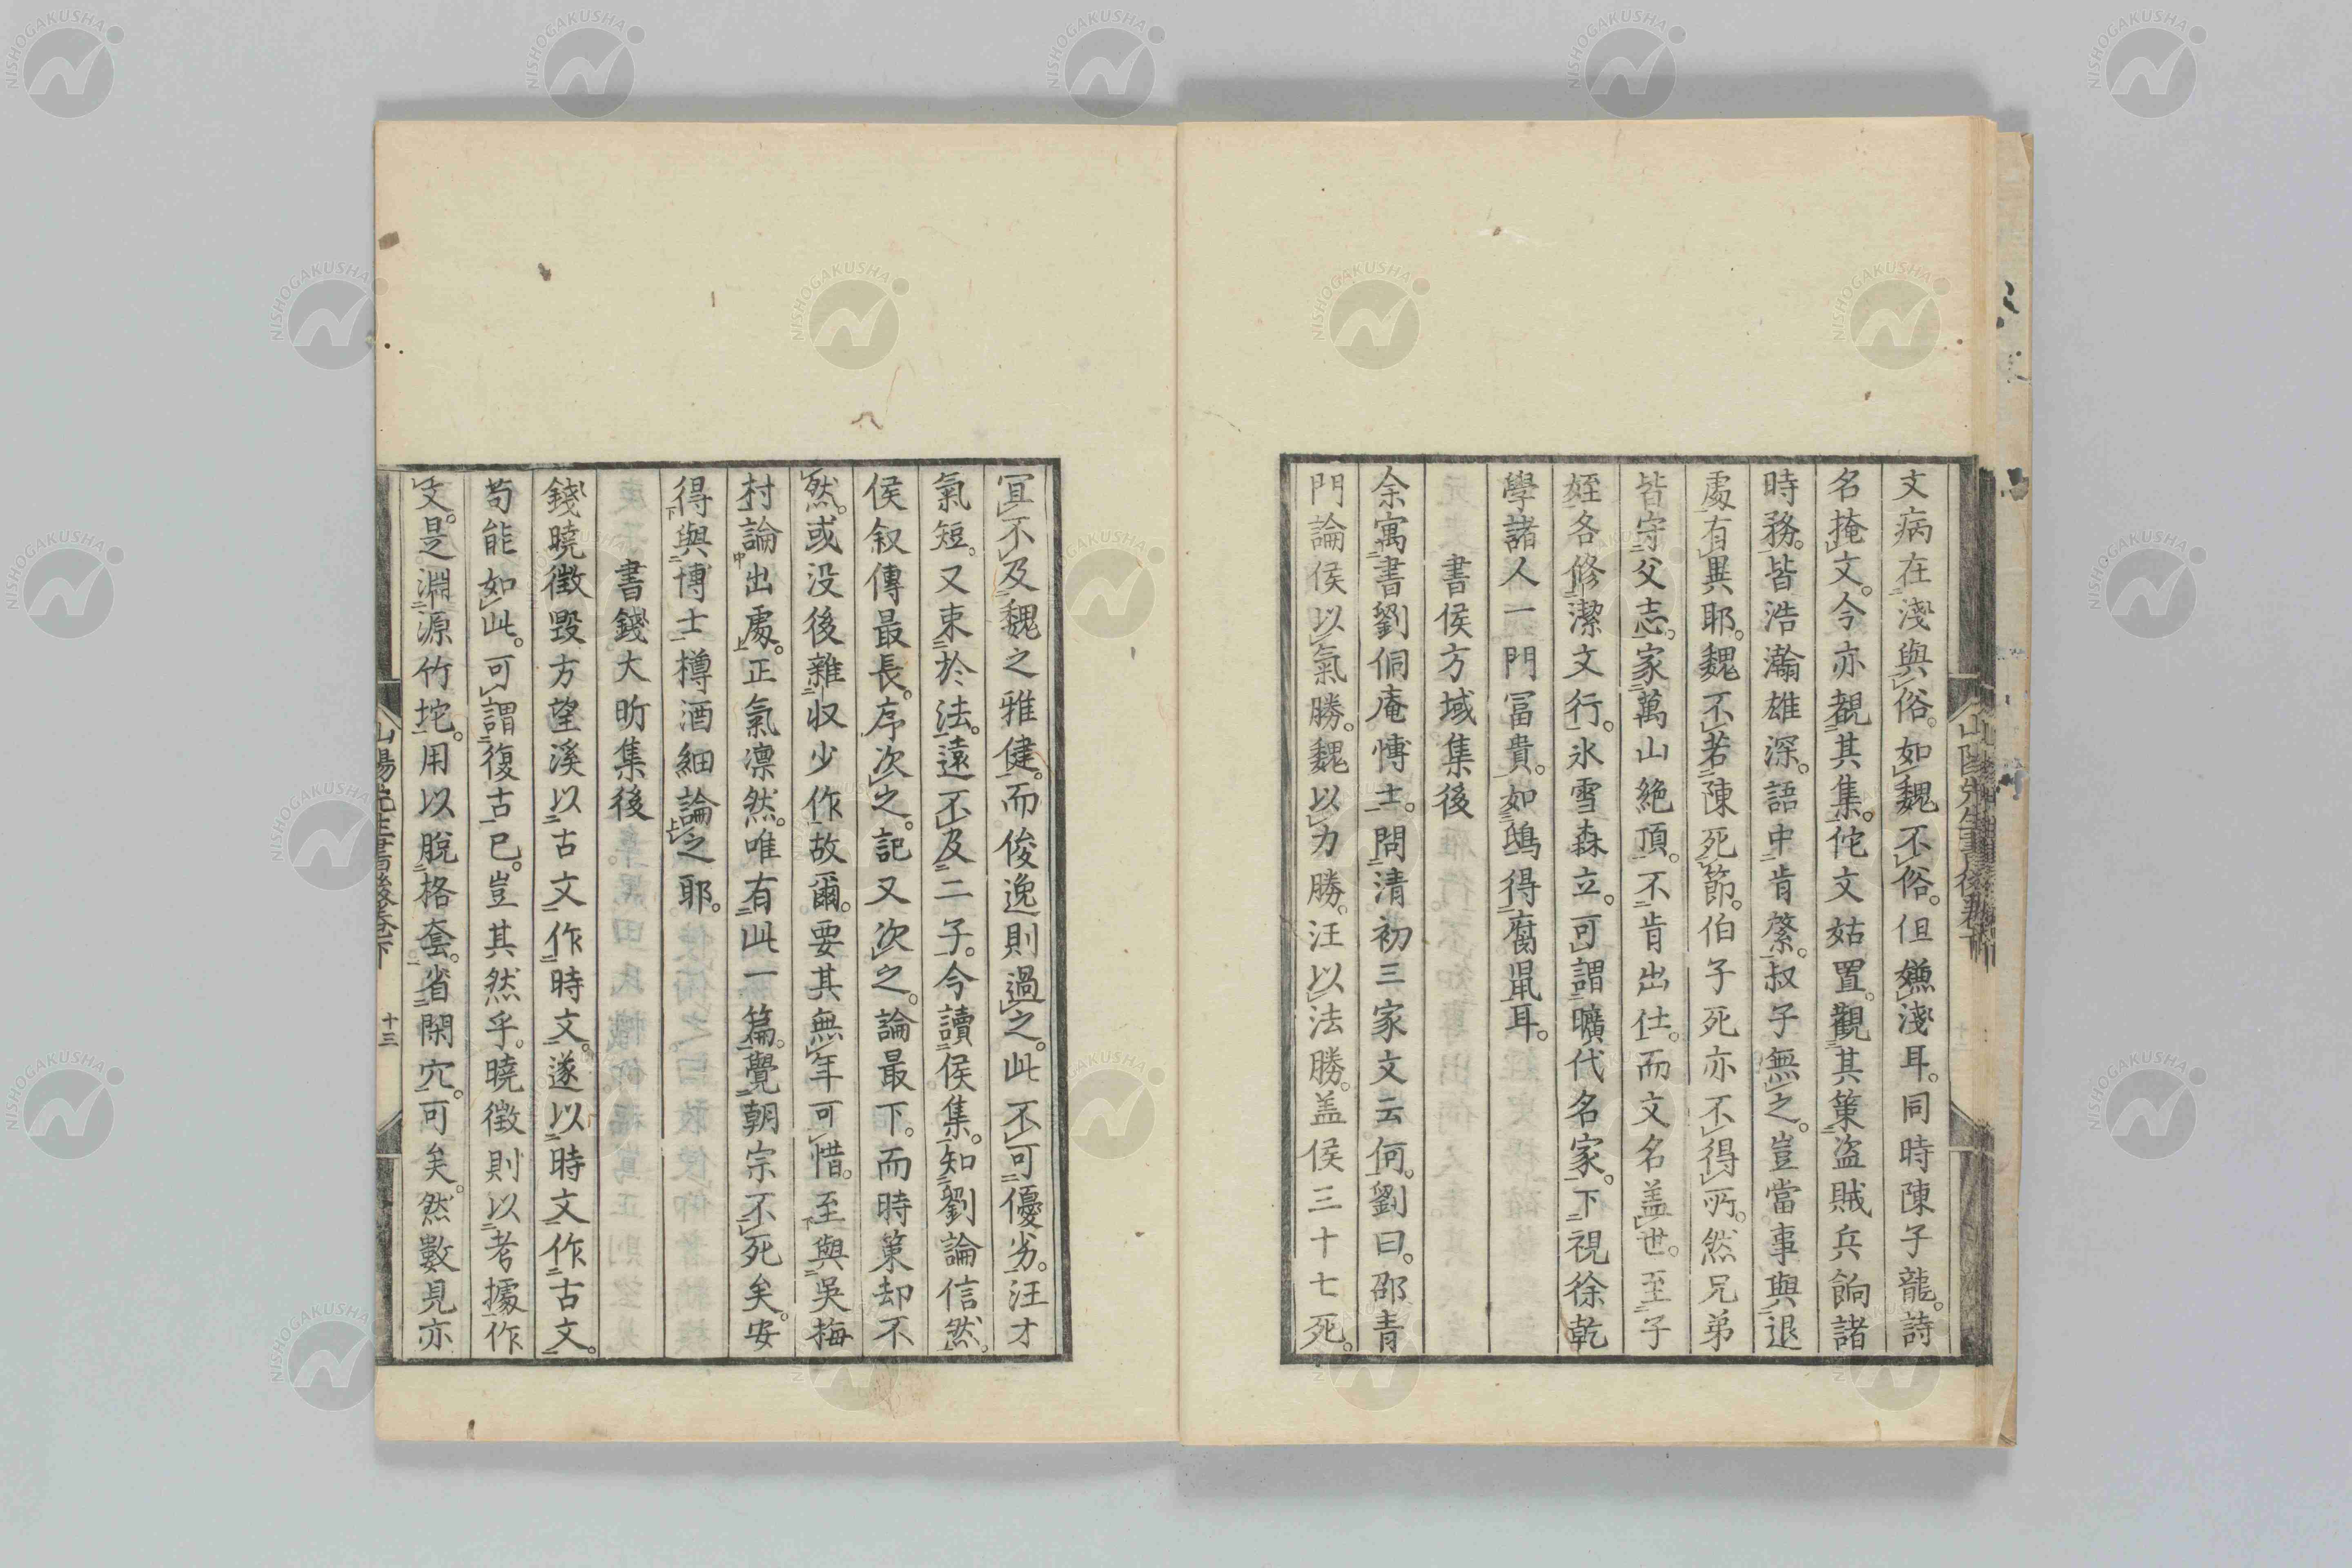 文病在淺與俗。如魏不俗。但嫌淺耳。同時陳子龍。詩
名掩文。今亦覩其集。佗文姑置。觀其策盗賊兵餉諸
時務。皆浩瀚雄深。語中肯綮。叔子無之。豈當事與退
處有異耶。魏不若陳死節。伯子死亦不得所。然兄弟
皆守父志。家萬山絶頂。不肯出仕。而文名盖世。至子
姪各修潔文行。氷雪森立。可謂曠代名家。下視徐乾
學諸人一門冨貴。如鴟得腐鼠耳。
書侯方域集後
余寓書劉侗庵博士。問清初三家文云何。劉曰。邵青
門論侯以氣勝。魏以力勝。汪以法勝。盖侯三十七死。
冝不及魏之雅健。而俊逸則過之。此不可優劣。汪才
氣短。又束於法。遠不及二子。今讀侯集。知劉論信然。
侯叙傳最長。序次之。記又次之。論最下。而時策却不
然。或没後雜収少作故爾。要其無年可惜。至與吳梅
村論出處。正氣凛然。唯有此一篇。覺朝宗不死矣。安
得與博士樽酒細論之耶。
書錢大昕集後
錢曉徴毀方望溪以古文作時文。遂以時文作古文。
苟能如此。可謂復古已。豈其然乎。曉徴則以考據作
文。是淵源竹垞。用以脫格套。省閑冗。可矣。然數見亦
山陽先生書後卷下
十三